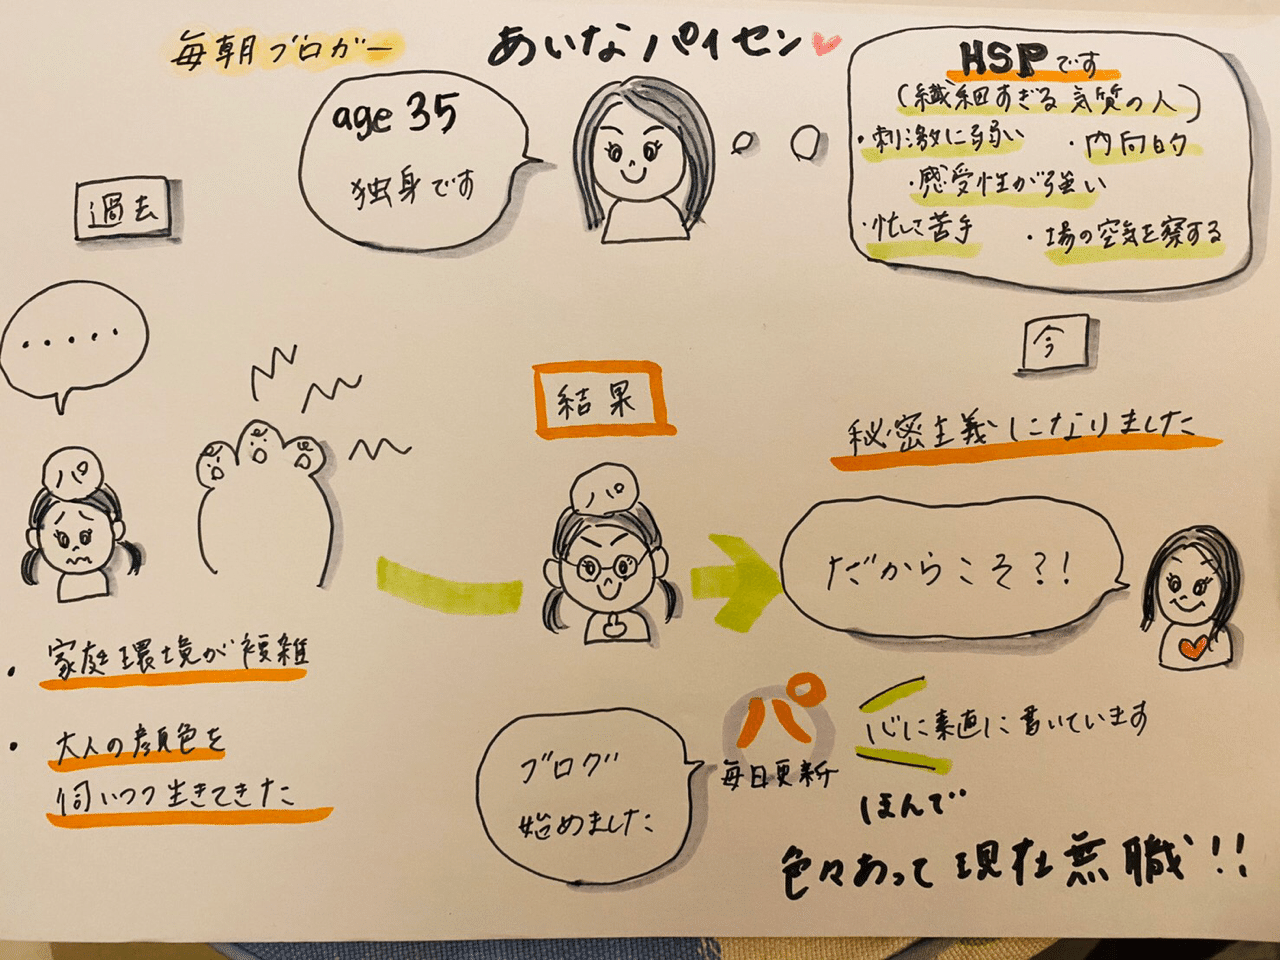 毎朝ブロガー
あいなパイセン
age 35
独身です
HSPです
(繊細すぎる気質の人)
・刺激に弱い
・内向的
・感受性が強い
・忙しさ苦手
・場の空気を察する
過去
.....
パ
・家庭環境が複雑
・大人の顔色を
伺いつつ生きてきた
結果
パ
今
秘密主義になりました
だからこそ?!
ブログ
始めました
パ
毎日更新
心に素直に書いています
ほんで
色々あって現在無職!!